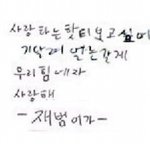 사랑하는 팟티 보고싶어
기달려 얼른갈게
우리 힘내자
사랑해
- 재범이가 -